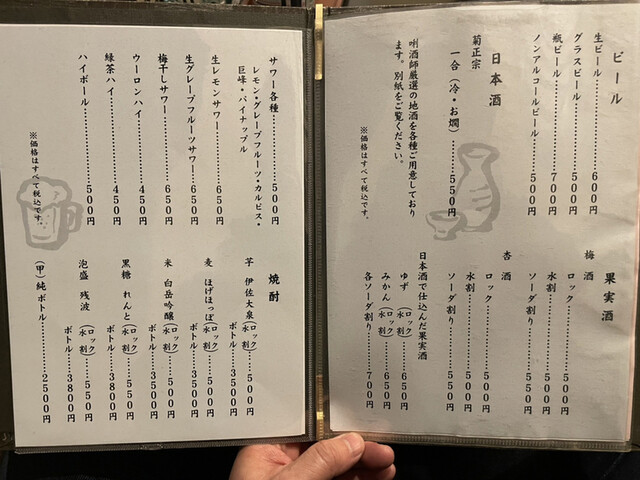 ビール
生ビール……………600円
グラスビール…………500円
瓶ビール……………700円
ノンアルコールビール……500円
日本酒
菊正宗
一合(冷・お燗)…………550円
唎酒師厳選の地酒を各種ご用意しており
ます。別紙をご覧ください。
※価格はすべて税込です。
果実酒
梅酒
ロック……………500円
水割……………500円
ソーダ割り…………550円
杏酒
ロック……………500円
水割……………500円
ソーダ割り…………550円
日本酒で仕込んだ果実酒
ゆず(ロック 水割)…650円
みかん(ロック 水割)…650円
各ソーダ割り…………700円
サワー各種……………500円
レモン・グレープフルーツ・カルピス・
巨峰・パイナップル
生レモンサワー…………650円
生グレープフルーツサワー……650円
梅干しサワー…………650円
ウーロンハイ…………450円
緑茶ハイ……………450円
ハイボール……………500円
※価格はすべて税込です。
焼酎
芋 伊佐大泉(ロック 水割)…500円
ボトル………3500円
麦 ほげほっぽ(ロック 水割)…500円
ボトル………3500円
米 白岳吟醸(ロック 水割)…500円
ボトル………3500円
黒糖 れんと(ロック 水割)…550円
ボトル………3800円
泡盛 残波(ロック 水割)…550円
ボトル………3800円
(甲)純 ボトル…………2500円